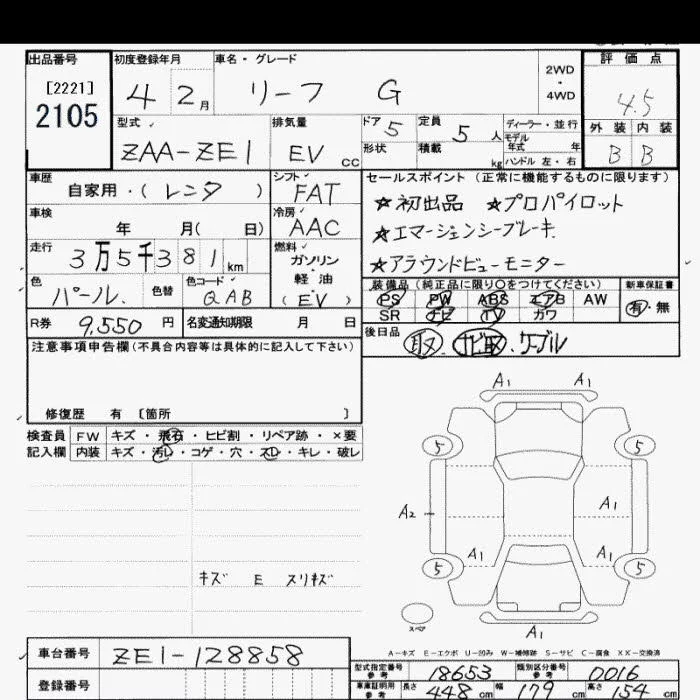 出品番号 初度登録年月 車名・グレード 評価点
[2221]
2105
4 2月 リーフ G
2WD
・
4WD
4.5
外装 内装
B B
型式 排気量 ドア 5 定員 5 人 ディーラー・並行
モデル
年式 年
ZAA-ZE1 EV cc 形状 積載 kg ハンドル 左・右
車歴 自家用・( レンタ )
シフト FAT
セールスポイント (正常に機能するものに限ります)
★初出品 ★プロパイロット
★エマージェンシーブレーキ
★アラウンドビューモニター
車検 年 月( 日)
冷房 AAC
走行 3万5千381km
燃料 ガソリン
・
軽油
(EV)
色 パール. 色替 色コード QAB
装備品 (純正品に限り○をつけてください) 新車保証書
PS PW ABS エアB AW 有・無
SR ナビ TV カワ
R券 9,550 円 名変通知期限 月 日
後日品 取 . ナビ取 . ケーブル
注意事項申告欄 (不具合内容等は具体的に記入して下さい)
修復歴 有 [箇所 ]
検査員 FW キズ・飛石・ヒビ割・リペア跡・×要
記入欄 内装 キズ・汚レ・コゲ・穴・スレ・キレ・破レ
キズ E スリキズ
A1 A1
5 5
A2 A1
A1 A1
5 5
スペア
A1
A-キズ E-エクボ U-凹み W-補修跡 S-サビ C-腐食 XX-交換済
車台番号 ZE1-128858
登録番号
型式指定番号
参考 18653 類別区分番号
参考 0016
車庫証明用
参考 長さ 448 cm 幅 179 cm 高さ 154 cm